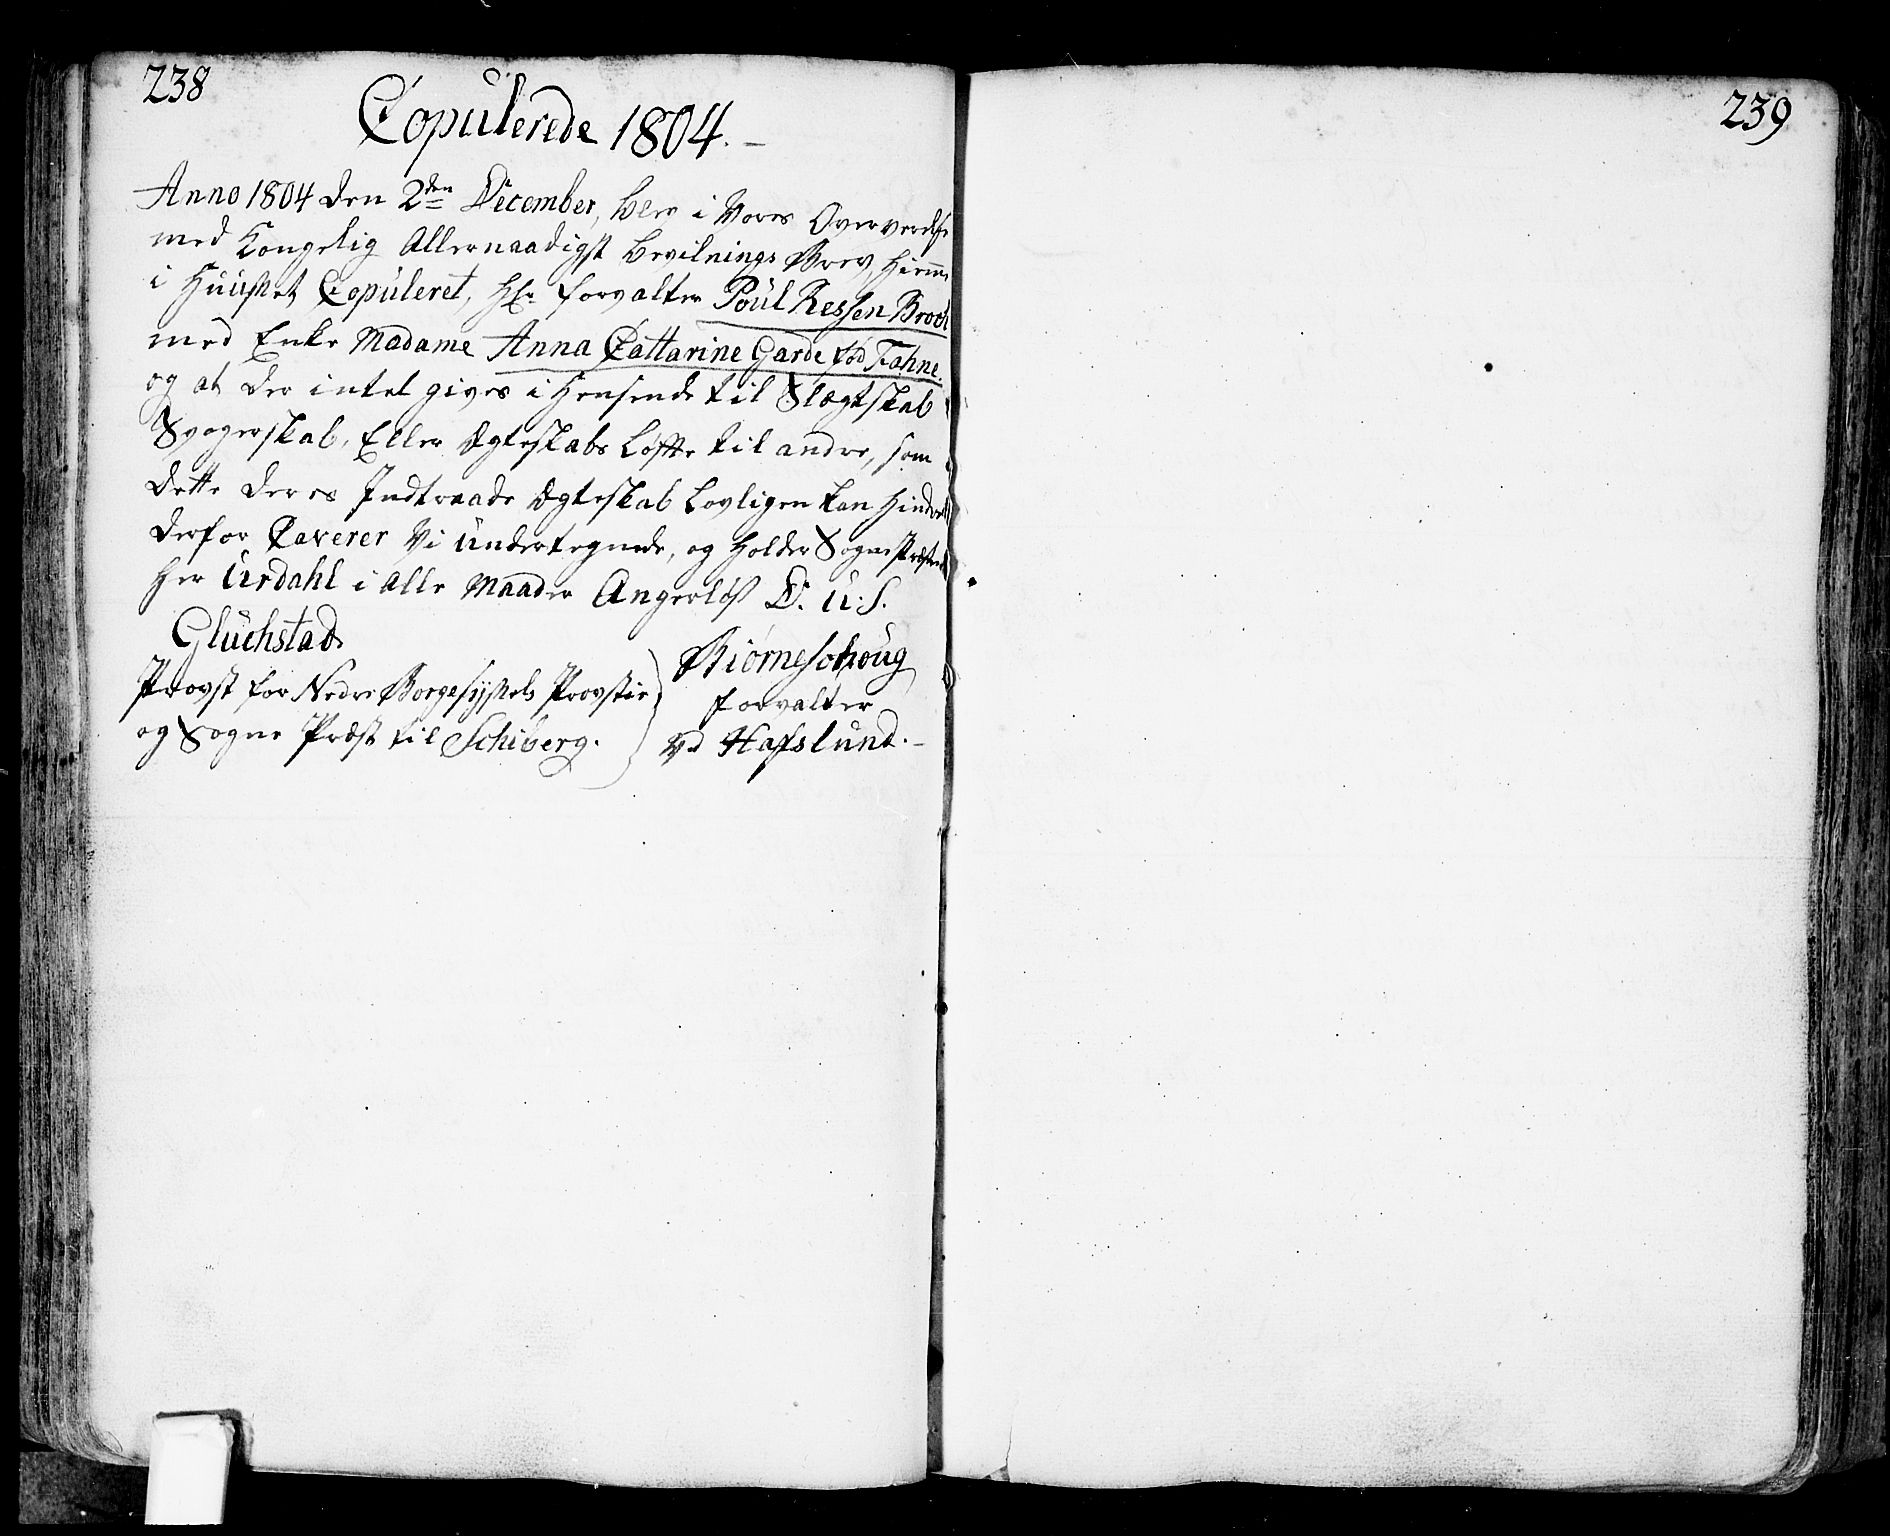 238
Copulerede 1804.
Anno 1804 den 2den December, blev i Vores Overværelse
med Kongelig Allernaadigst Bevilnings Brev, hiemme
i Huuset Copuleret, Hr. Forvalter Poul Ressen Broch
med Enke Madame Anna Cattarine Garde fød Fahne.
og at der intet gives i Hensende til Slægtskab
Svogerskab, Eller Ægteskabs Løfte til andre, som
dette deres Indtraade Ægteskab Lovligen kan hindre
derfor Caverer Vi Undertegnede, og holder Sogne Præsten
Her Urdahl i Alle Maader Angerløs D. U. S.
Gluchstad
Provst for Nedre Borgesyssels Provstie
og Sogne Præst til Schiberg.
Biørneschoug
Forvalter
Vd Hafslund.
239